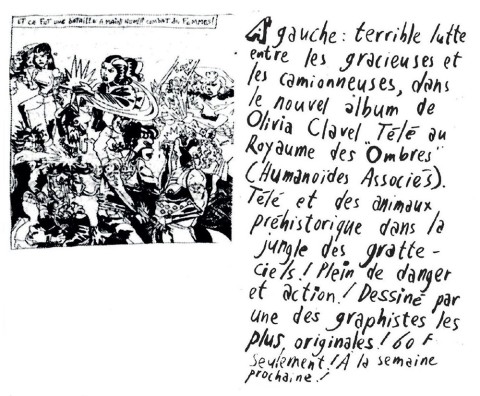 ET CE FUT UNE BATAILLE A MAINS NUES!! COMBAT DE FEMMES!
A gauche : terrible lutte
entre les gracieuses et
les camionneuses, dans
le nouvel album de
Olivia Clavel Télé au
Royaume des "Ombres"
(Humanoïdes Associés).
Télé et des animaux
préhistorique dans la
jungle des gratte-
ciels! Plein de danger
et action! Dessiné par
une des graphistes les
plus originales! 60 F
seulement! A la semaine
prochaine!